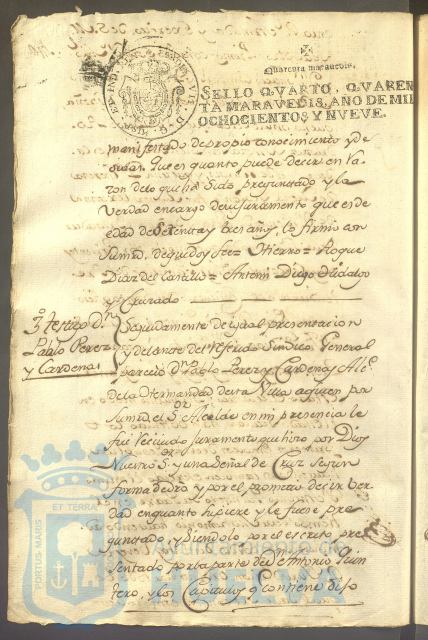 Quarenta maravedis.
SELLO QVARTO, QVAREN
TA MARAVEDIS, AÑO DE MIL
OCHOCIENTOS Y NVEVE.
manifestado de propio conocimiento y de
Que en quanto puede decir en la
zon de lo que ha sido preguntado y la
verdad en cargo de su juramento que es de
edad de setenta y tres años, lo firmó con
su mrd. de que doy fee = Hierro = Roque
Diaz del Castillo = Antonio Diego Hidalgo
y Cruzado
3º testigo Dn
Pablo Perez
y Cardenas
Seguidamente de igual presentacion
y delante del referido Sindico General
parecio Dn Pablo Perez y Cardenas Alce
de la Hermandad desta Villa a quien por
su mrd. el Sor Alcalde en mi presencia le
fue recivido juramento que hizo por Dios
Nuestro Sor y una señal de Cruz segun
forma de dro y por el prometio decir ver
dad en quanto supiere y le fuese pre
guntado, y siendolo por el escrito pre
sentado por la parte de Dn Antonio Quin
tero, y los Capitulos q contiene dijo
PORTUS MARIS ET TERRAE
Ayuntamiento de
HUELVA